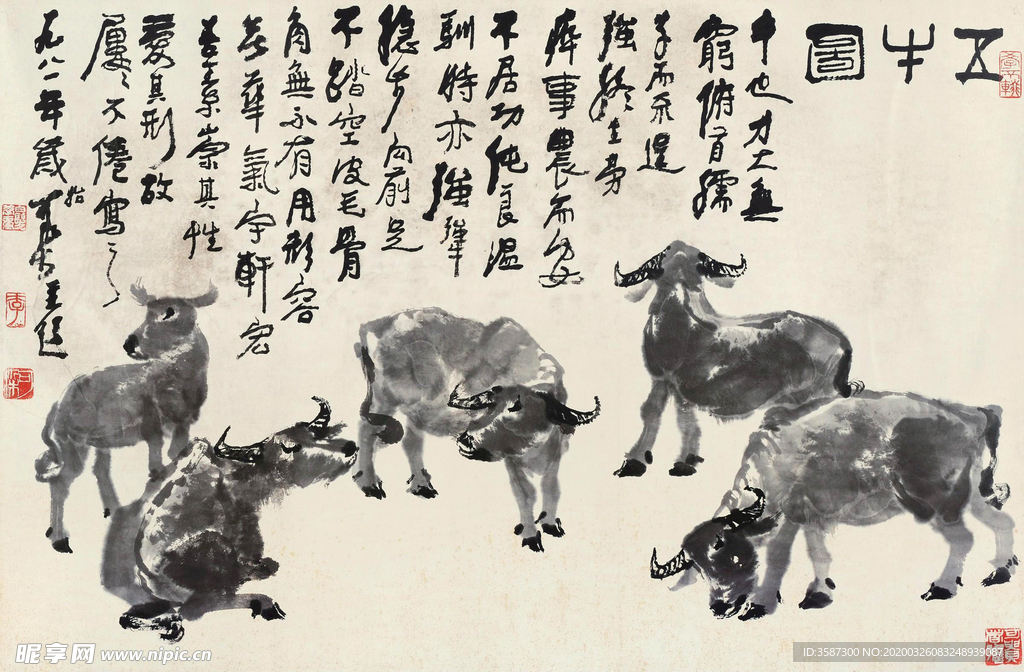 五牛圖
牛也力大無
窮俯首孺
子而不逞
強終生勞
瘁事農而安
不居功純良温
馴時亦強犟
穩步向前足
不踏空皮毛骨
角無不有用形容
無華氣宇軒宏
吾素崇其性
愛其形故
屢々不倦寫之
一九八一年歲始可染
昵享网 www.nipic.cn
ID:3587300 NO:20200326083248939087